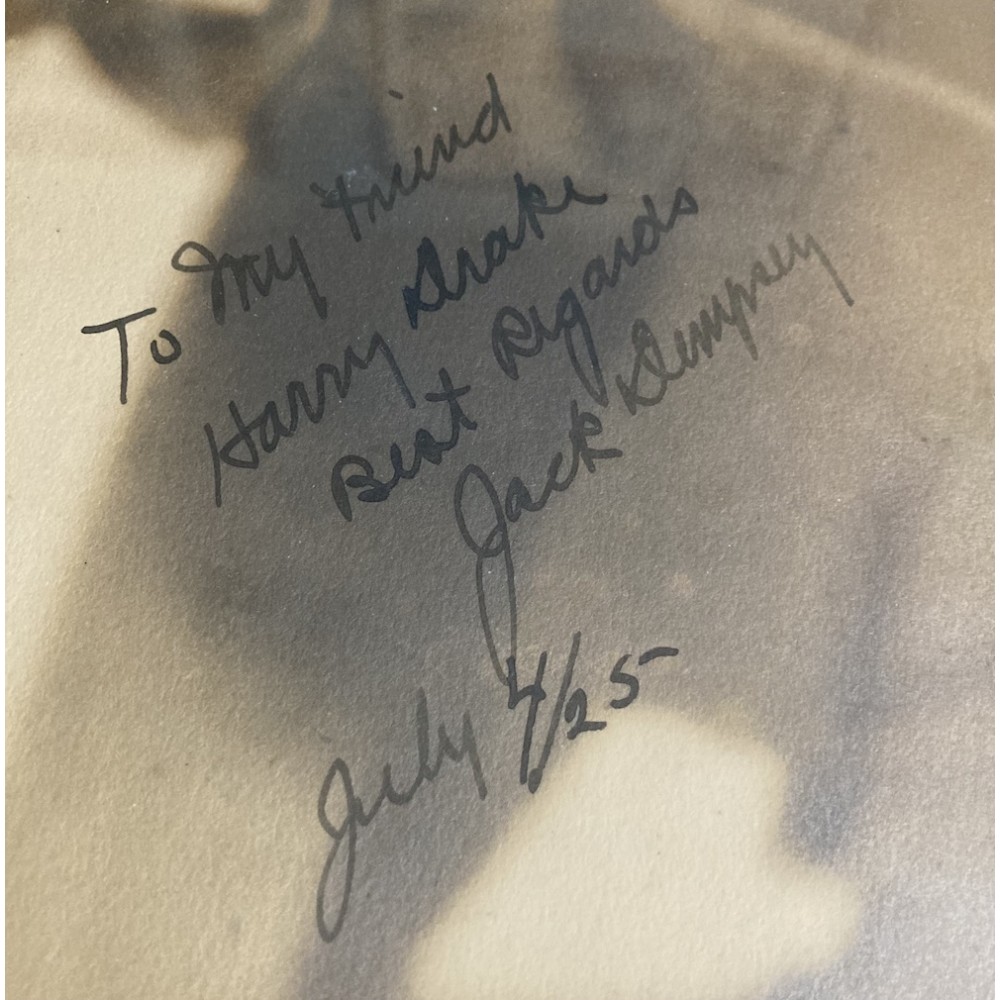 To My Friend
Harry Drake
Best Regards
Jack Dempsey
July 4/25